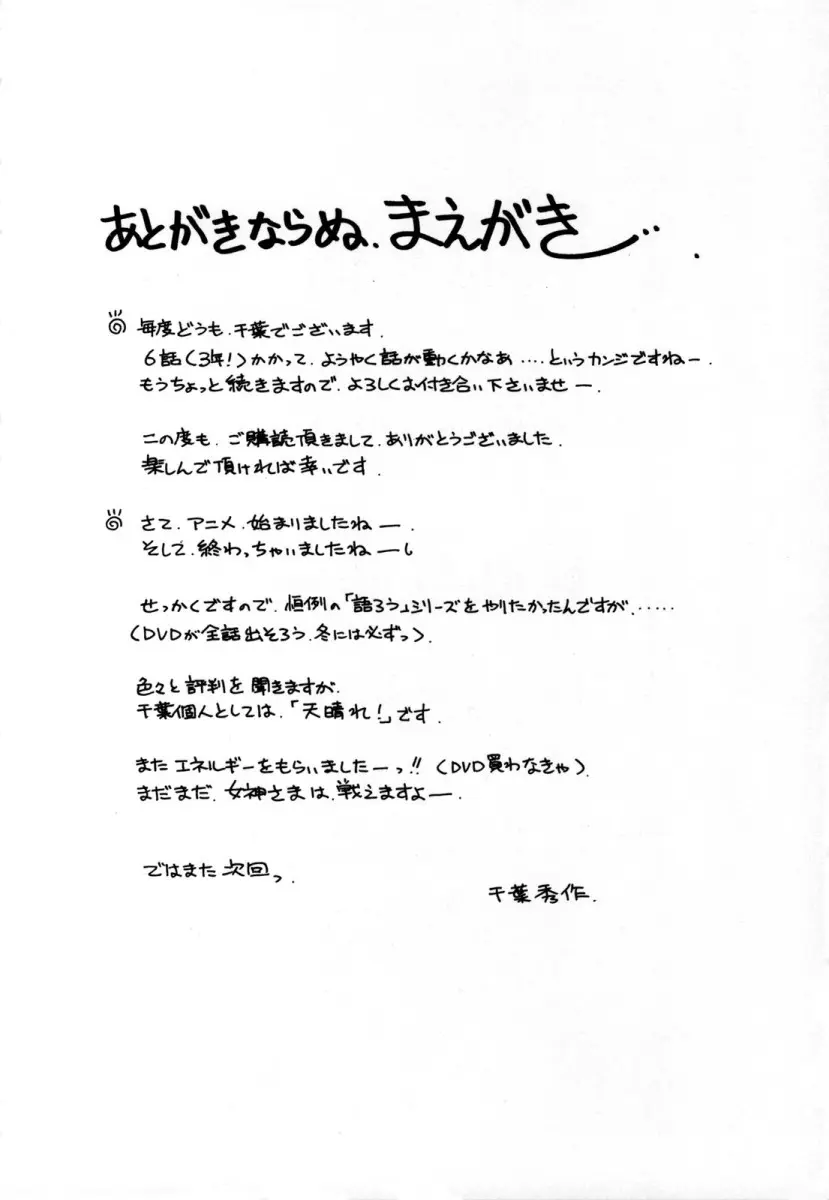 あとがきならぬ、まえがき…．
毎度どうも、千葉でございます．
6話(3年！)かかって、ようやく話が動くかなあ‥‥というカンジですねー．
もうちょっと続きますので、よろしくお付き合い下さいませー．
この度も、ご購読頂きまして、ありがとうございました．
楽しんで頂ければ幸いです．
さて、アニメ、始まりましたねー．
そして、終わっちゃいましたねー。
せっかくですので、恒例の「語ろう」シリーズをやりたかったんですが‥‥‥
(DVDが全話出そろう、冬には必ずっ)．
色々と評判を聞きますが、
千葉個人としては、「天晴れ！」です．
またエネルギーをもらいましたーっ!!(DVD買わなきゃ)．
まだまだ、女神さまは、戦えますよー．
ではまた次回っ．
千葉秀作．